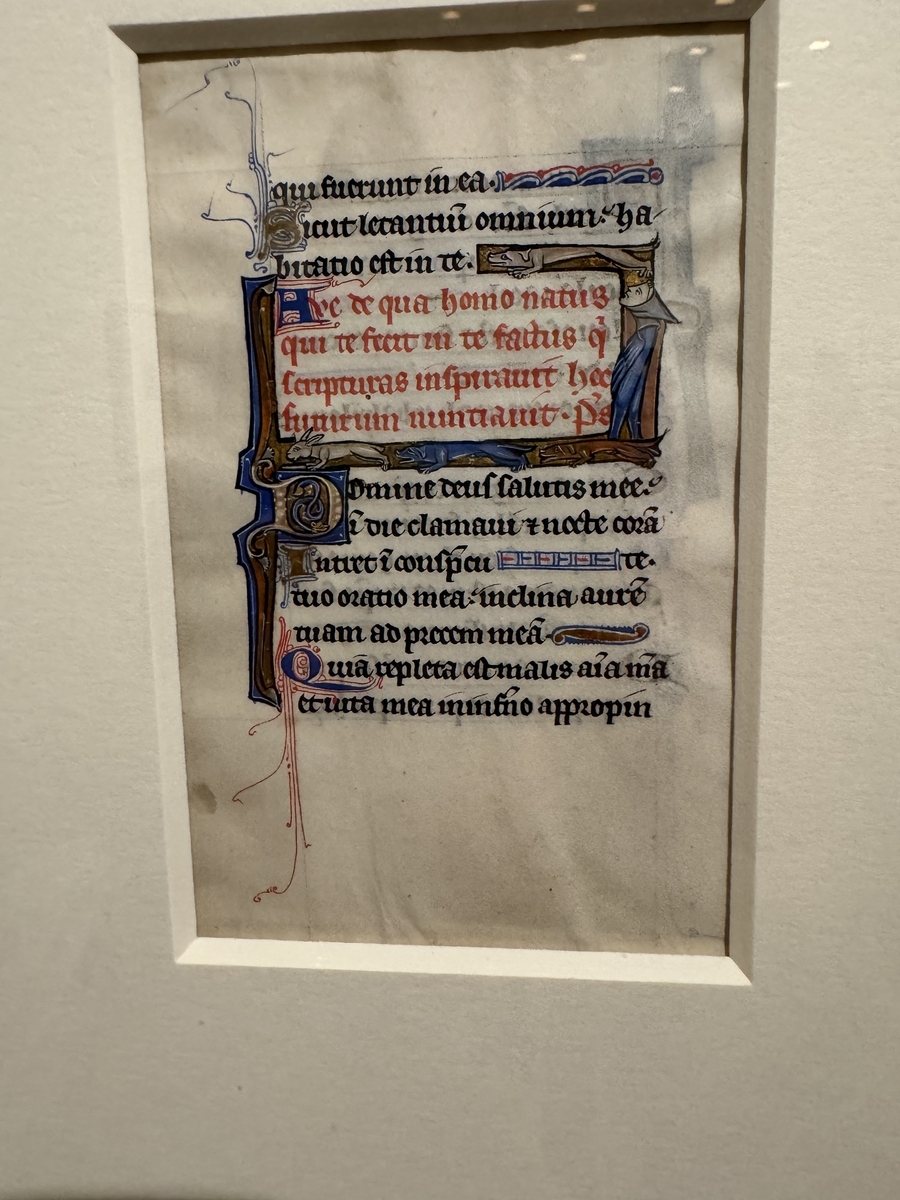 qui fuerunt in ea.
Sicut letantiū omnium: ha
bitatio est in te.
Ave de qua homo natus
qui te fecit in te factus q̇
scripturas inspirauit hec
futurum nuntiauit. Ps̄
Domine deus salutis mee:
ī die clamaui ⁊ nocte corā
Intret ī consp̄cu te.
tuo oratio mea: inclina aurē
tuam ad precem meā.
Quiā repleta est malis aīa m̄a
et uita mea in inf̄no appropin